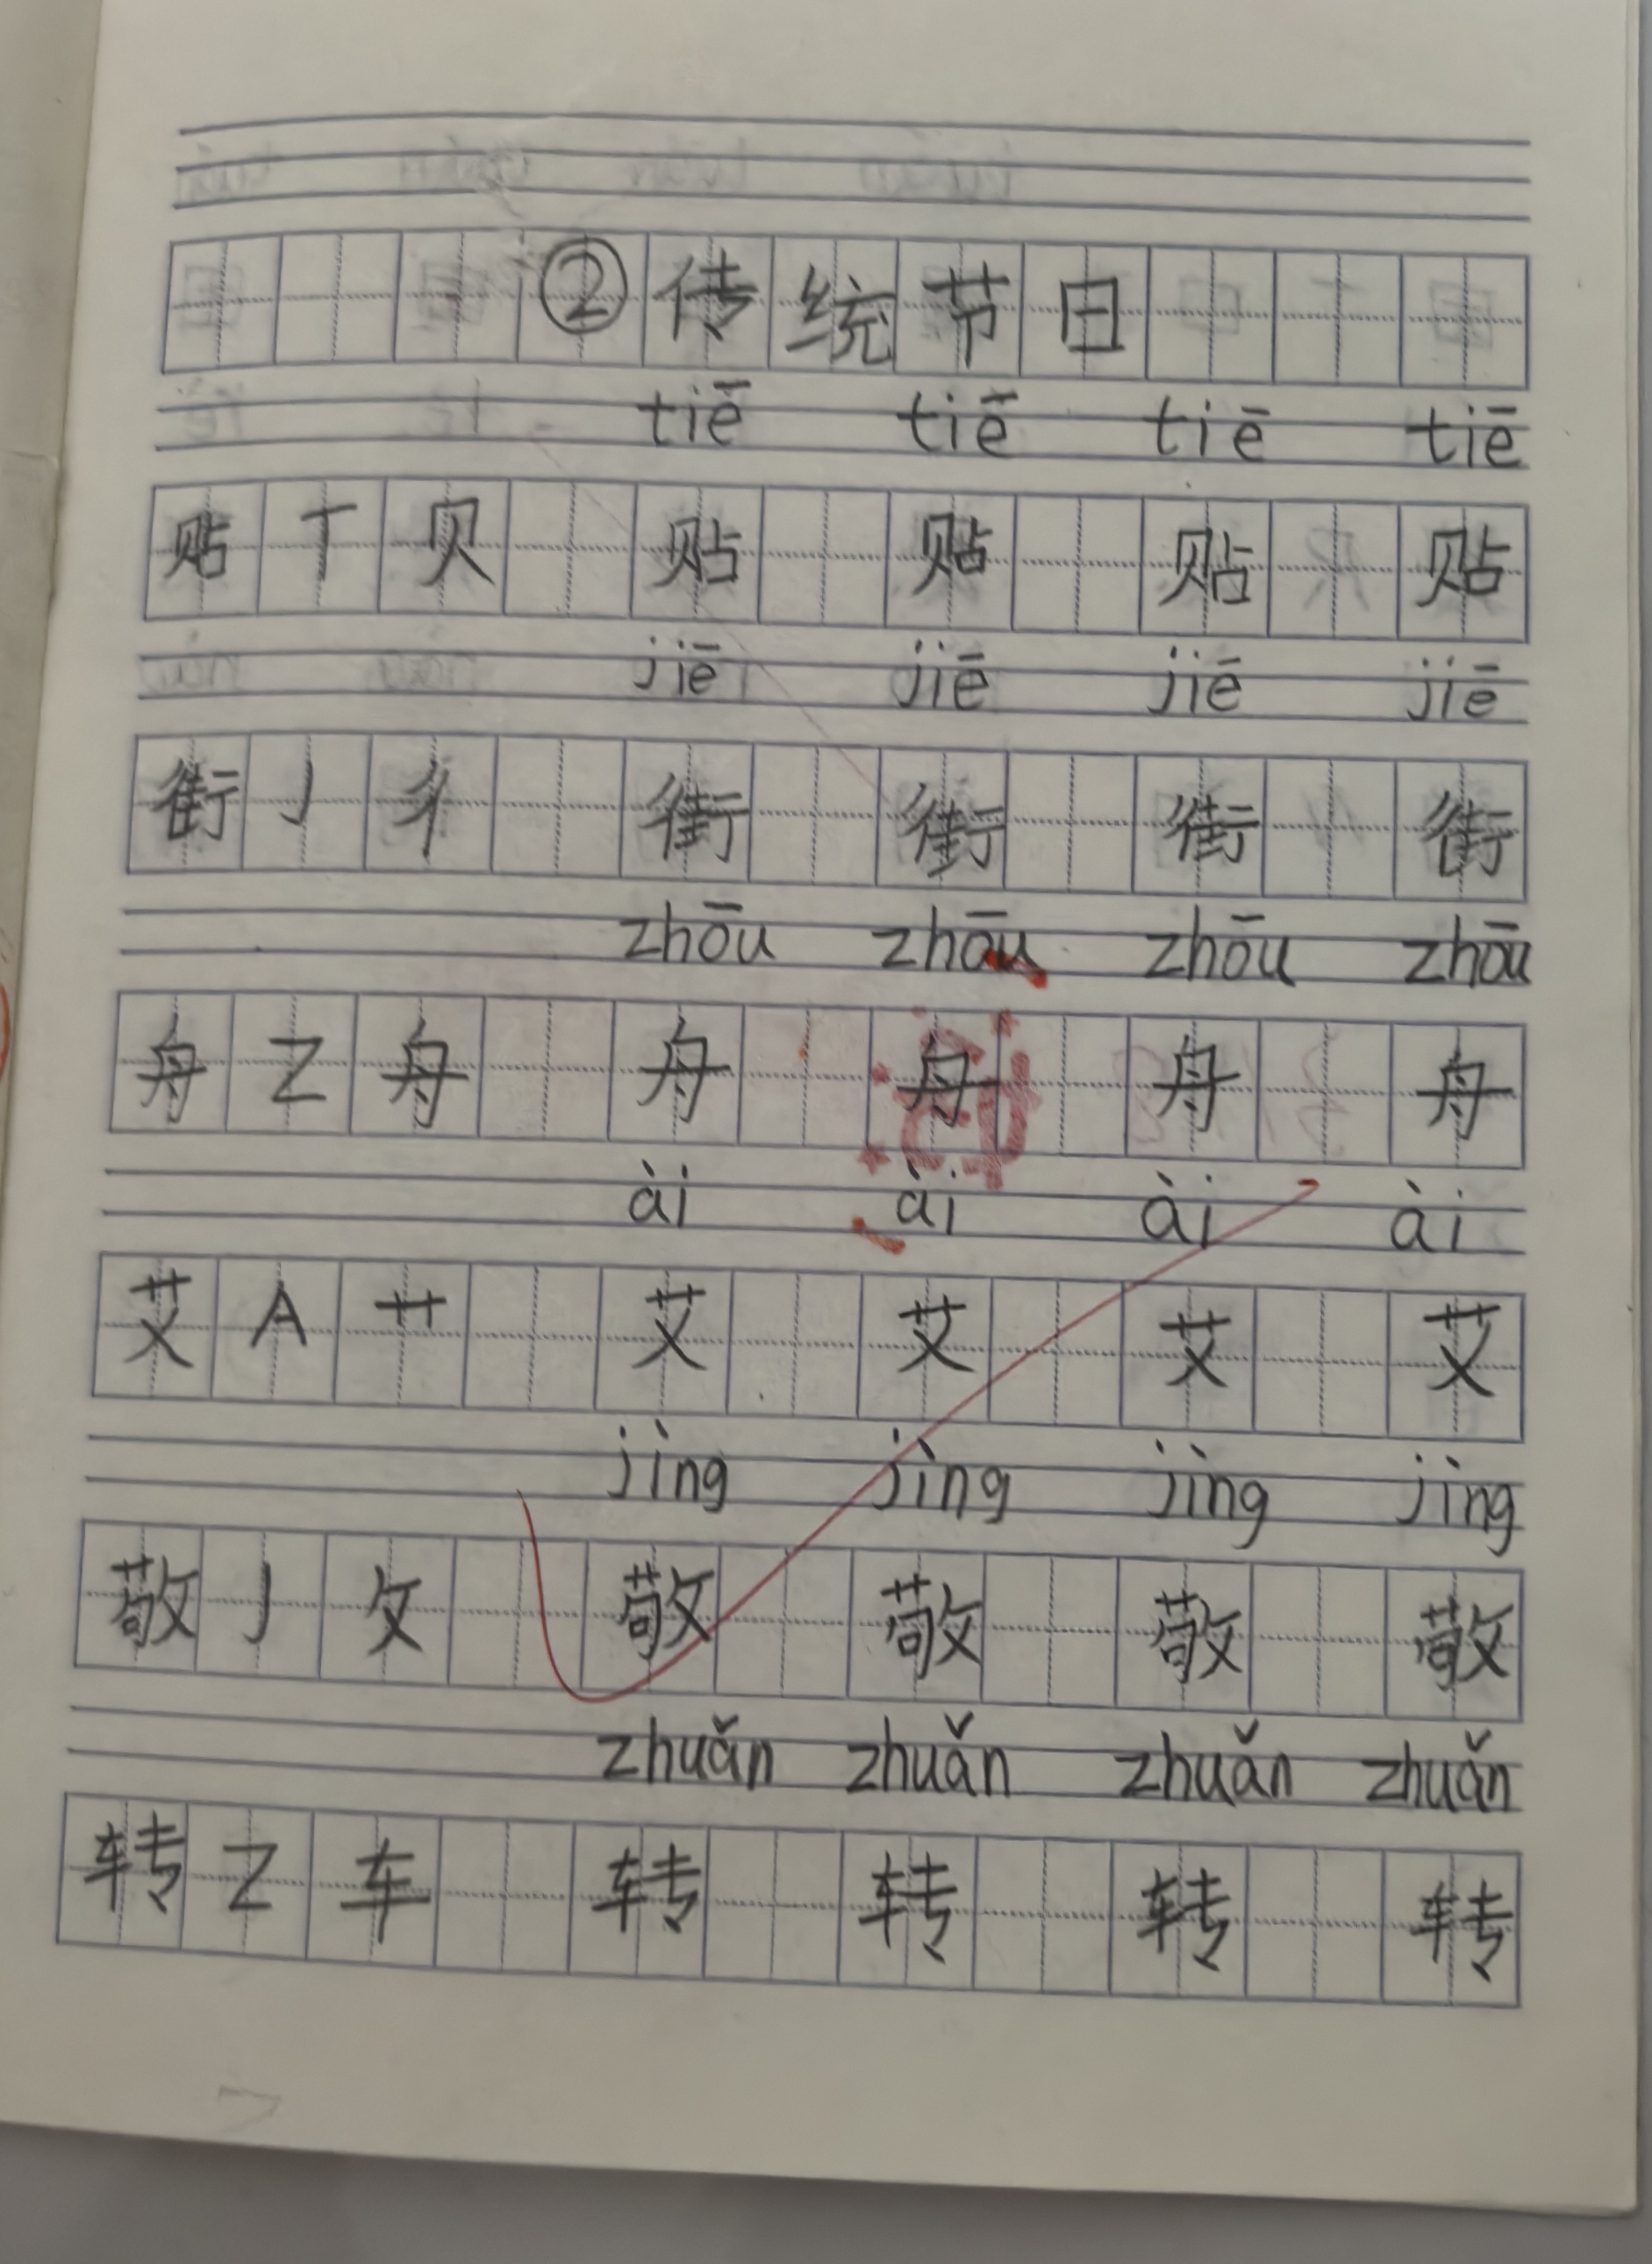 ②传统节日
tiē tiē tiē tiē
贴 T 贝 贴 贴 贴 贴
jiē jiē jiē jiē
街 J 彳 街 街 街 街
zhōu zhōu zhōu zhōu
舟 Z 舟 舟 舟 舟 舟
ài ài ài ài
艾 A 艹 艾 艾 艾 艾
jìng jìng jìng jìng
敬 J 攵 敬 敬 敬 敬
zhuǎn zhuǎn zhuǎn zhuǎn
转 Z 车 转 转 转 转